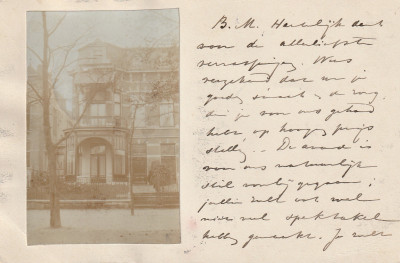 B. M. Hartelijk dank
voor de allerliefste
verrassing. Wees
verzekerd dat we je
goede smaak & de zorg,
die je voor ons gehad
hebt, op hoogen prijs
stellen. De avond is
voor ons natuurlijk
stil voorbij gegaan;
jullie zult ook wel
niet veel spektakel
hebben gemaakt. Je